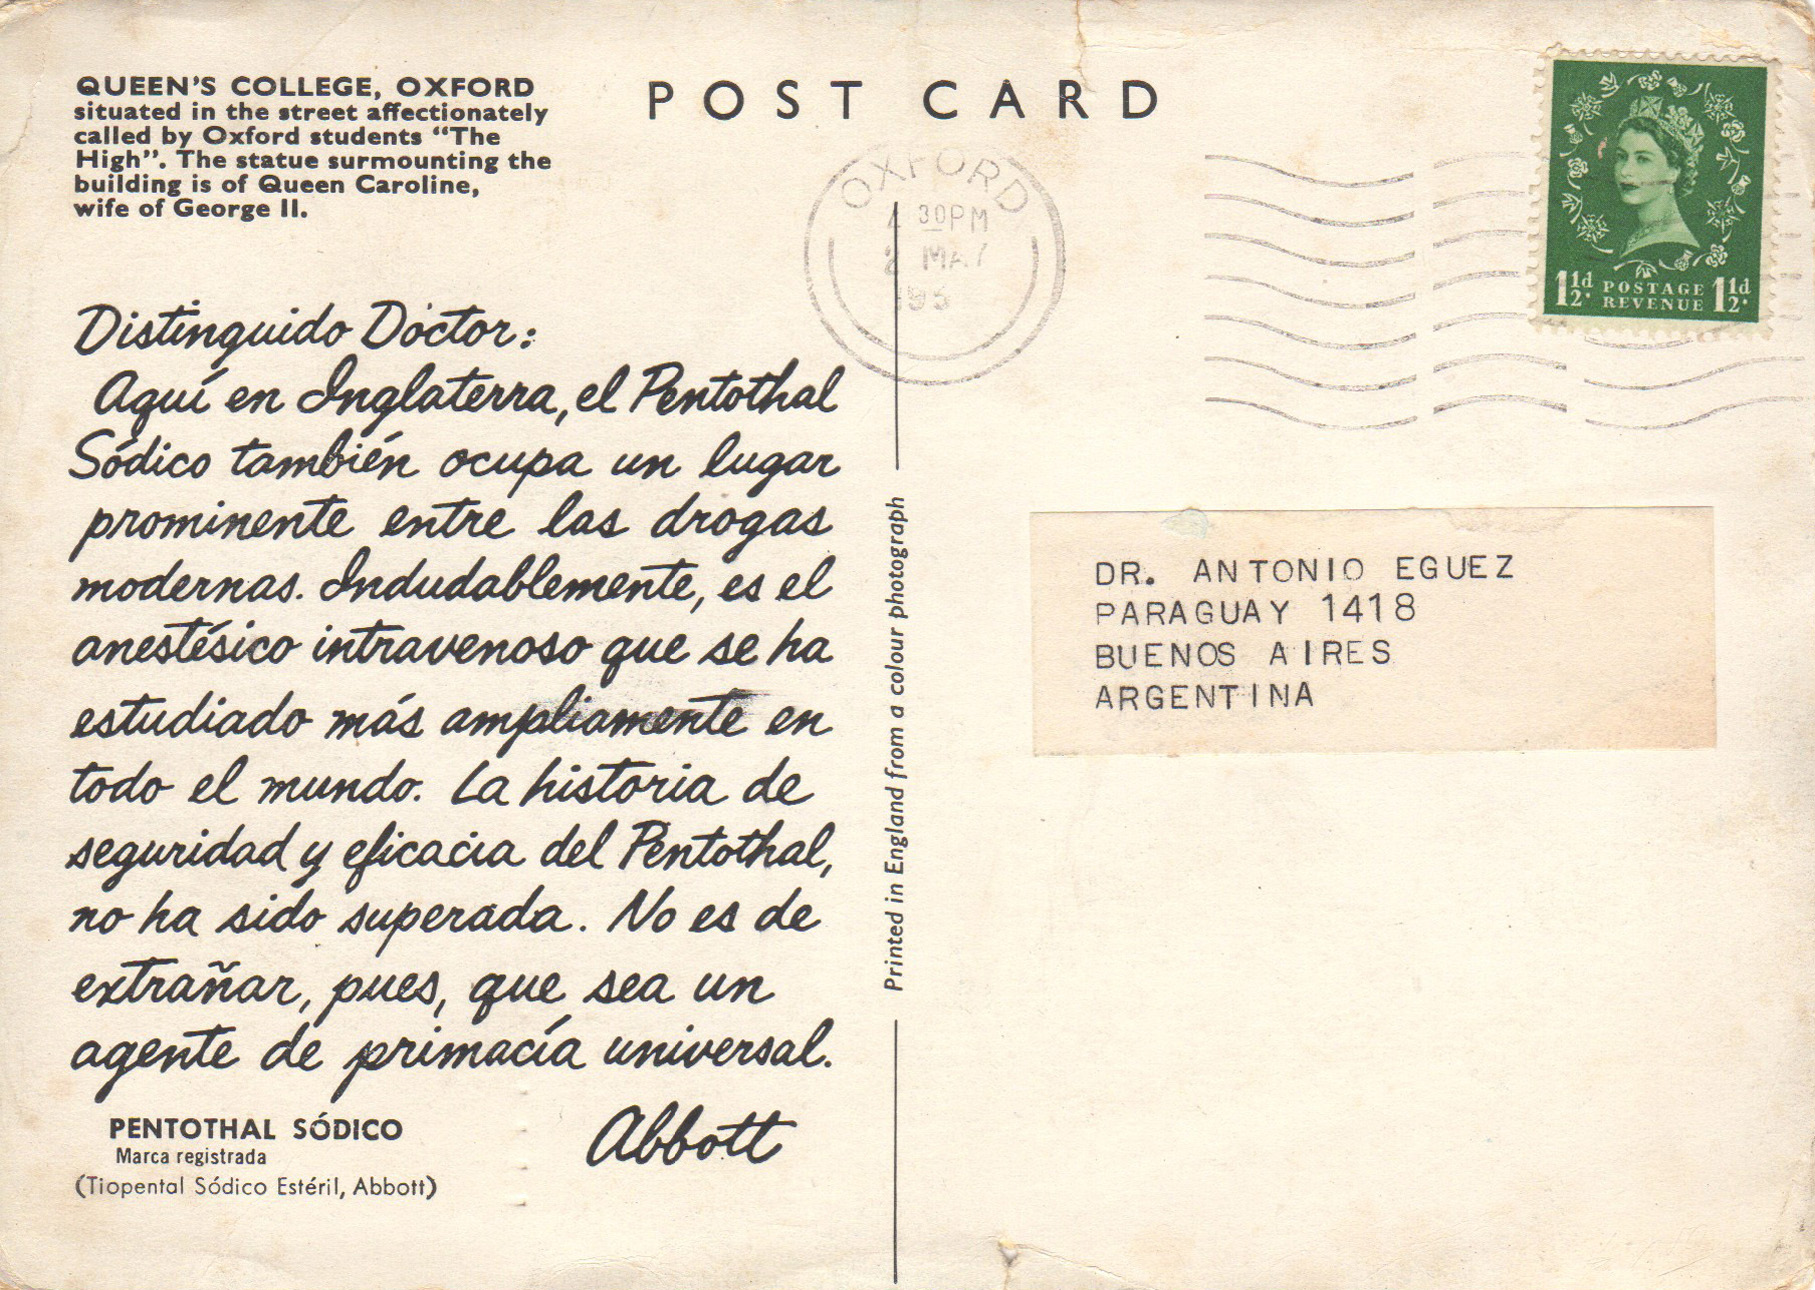 QUEEN'S COLLEGE, OXFORD
situated in the street affectionately
called by Oxford students "The
High". The statue surmounting the
building is of Queen Caroline,
wife of George II.
POST CARD
OXFORD
30PM
MAY
1½d POSTAGE REVENUE 1½d
Distinguido Doctor:
Aquí en Inglaterra, el Pentothal
Sódico también ocupa un lugar
prominente entre las drogas
modernas. Indudablemente, es el
anestésico intravenoso que se ha
estudiado más ampliamente en
todo el mundo. La historia de
seguridad y eficacia del Pentothal,
no ha sido superada. No es de
extrañar, pues, que sea un
agente de primacía universal.
Abbott
PENTOTHAL SÓDICO
Marca registrada
(Tiopental Sódico Estéril, Abbott)
Printed in England from a colour photograph
DR. ANTONIO EGUEZ
PARAGUAY 1418
BUENOS AIRES
ARGENTINA